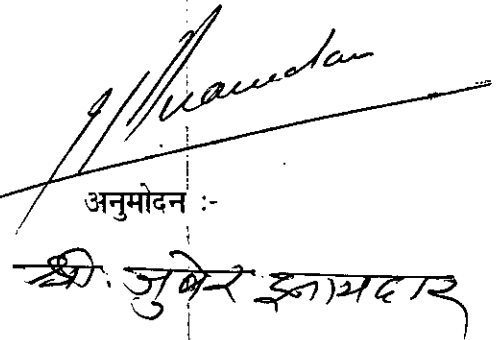 अनुमोदन :-
श्री. जुबेर इनामदार